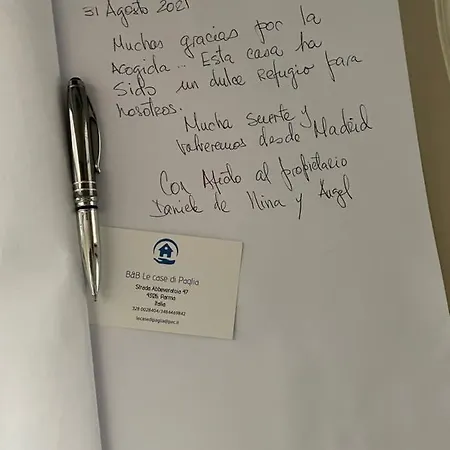 31 Agosto 2021
Muchas gracias por la
acogida... Esta casa ha
sido un dulce refugio para
nosotros.
Mucha suerte y
volveremos desde Madrid
Con Afecto al propietario
Daniele de Nina y Ángel
B&B Le case di Paglia
Strada Abbeveratoia 47
43126 Parma
Italia
328 0028404/3484469842
lecasedipaglia@pec.it